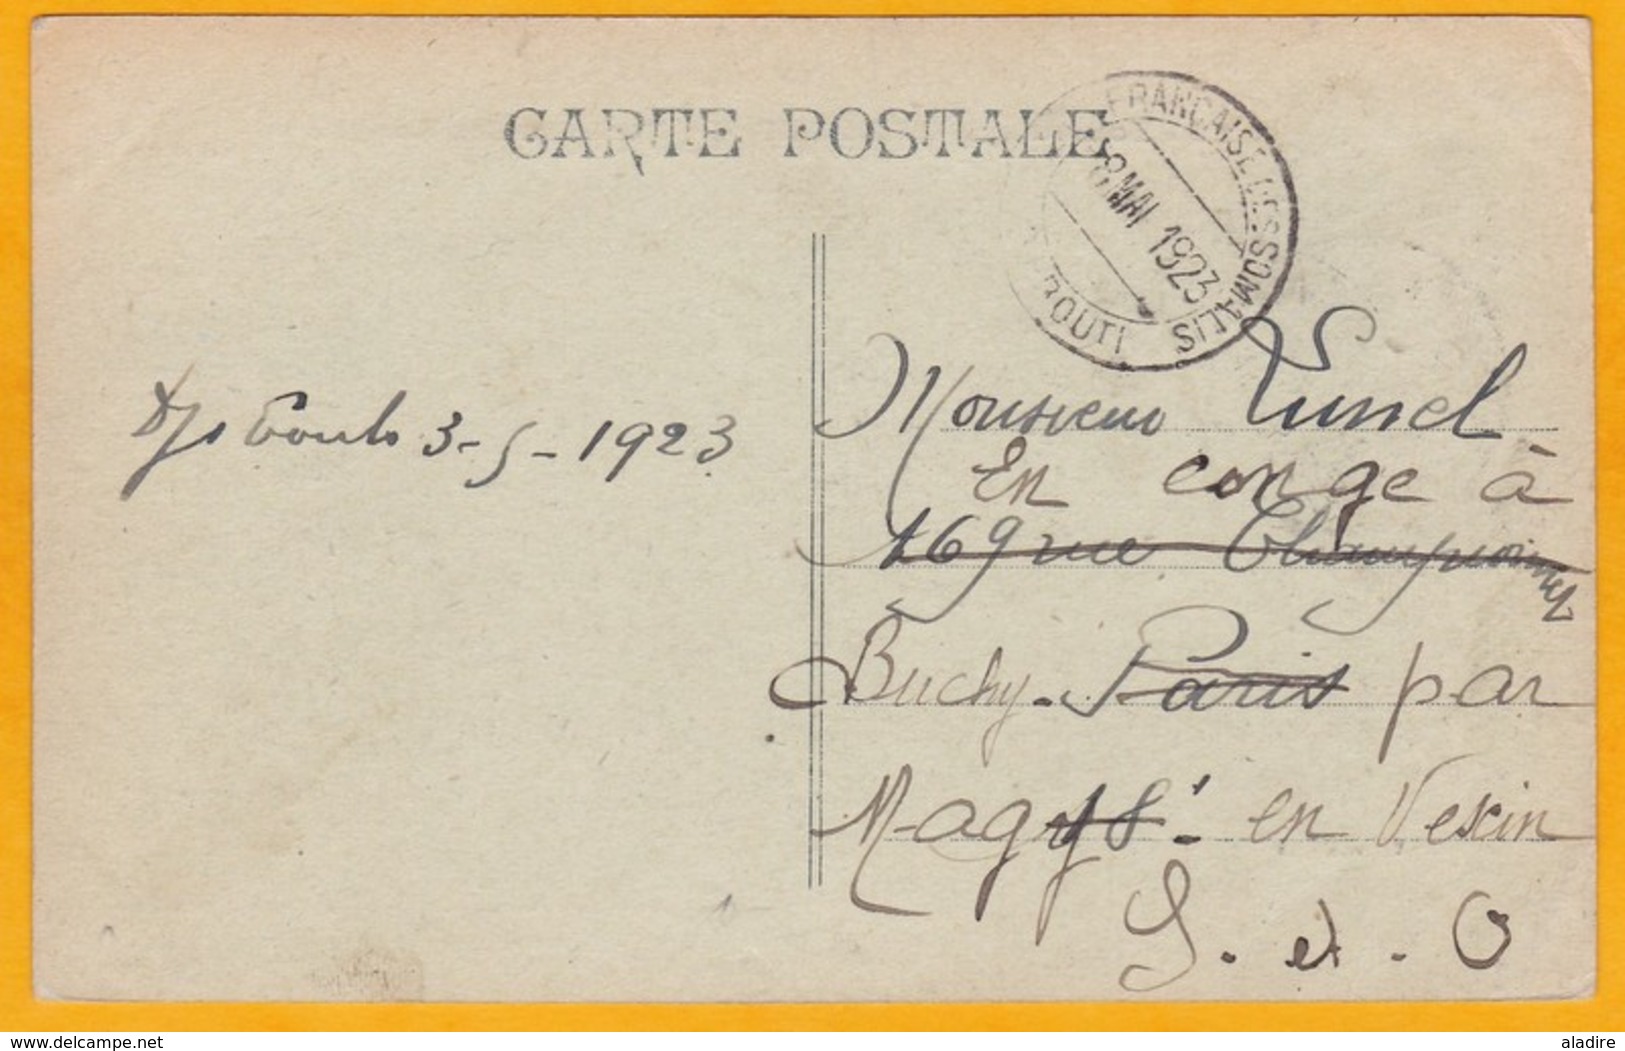 CARTE POSTALE
FRANÇAISE DES SOMALIS
8 MAI 1923
BOUTI
Djibouti 3-5-1923
Monsieur Lunel
En conge à
169 rue Championnet
Buchy - Paris par
Magny en Vexin
S. et. O
delcampe.net
aladire